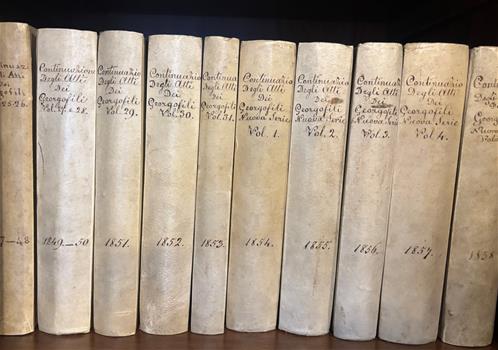 Continuazione
Degli Atti
Dei
Georgofili
Vol. 27. e 28.
1849.—50
Continuazio
Degli Atti
Dei
Georgofili
Vol. 29.
1851.
Continuazio
Degli Atti
Dei
Georgofili
Vol. 30.
1852.
Continuazio
Degli Atti
Dei
Georgofili
Vol. 31.
1853.
Continuazio
Degli Atti
Dei
Georgofili
Nuova Serie
Vol. 1.
1854.
Continuazio
Degli Atti
Dei
Georgofili
Nuova Serie
Vol. 2.
1855.
Continuazio
Degli Atti
Dei
Georgofili
Nuova Serie
Vol. 3.
1856.
Continuazio
Degli Atti
Dei
Georgofili
Nuova Serie
Vol. 4.
1857.
1858